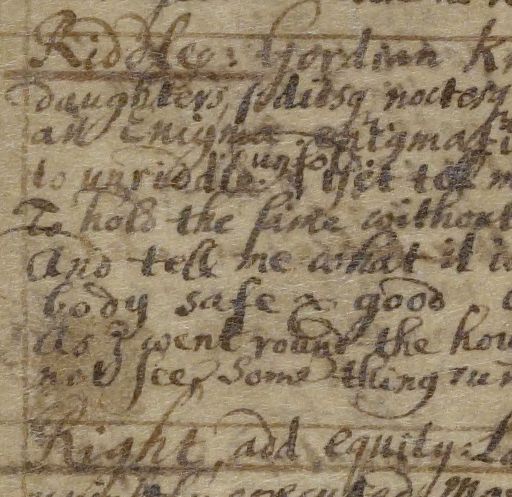 Riddle: Gordian Kn
daughters, soditsq noctesq
an Enigma enigmati
to unriddle. unfold yet tell m
To hold the same without
And tell me what it is
body safe & good
As I went round the hou
not see, Some thing run
Right, add equity: La
executed